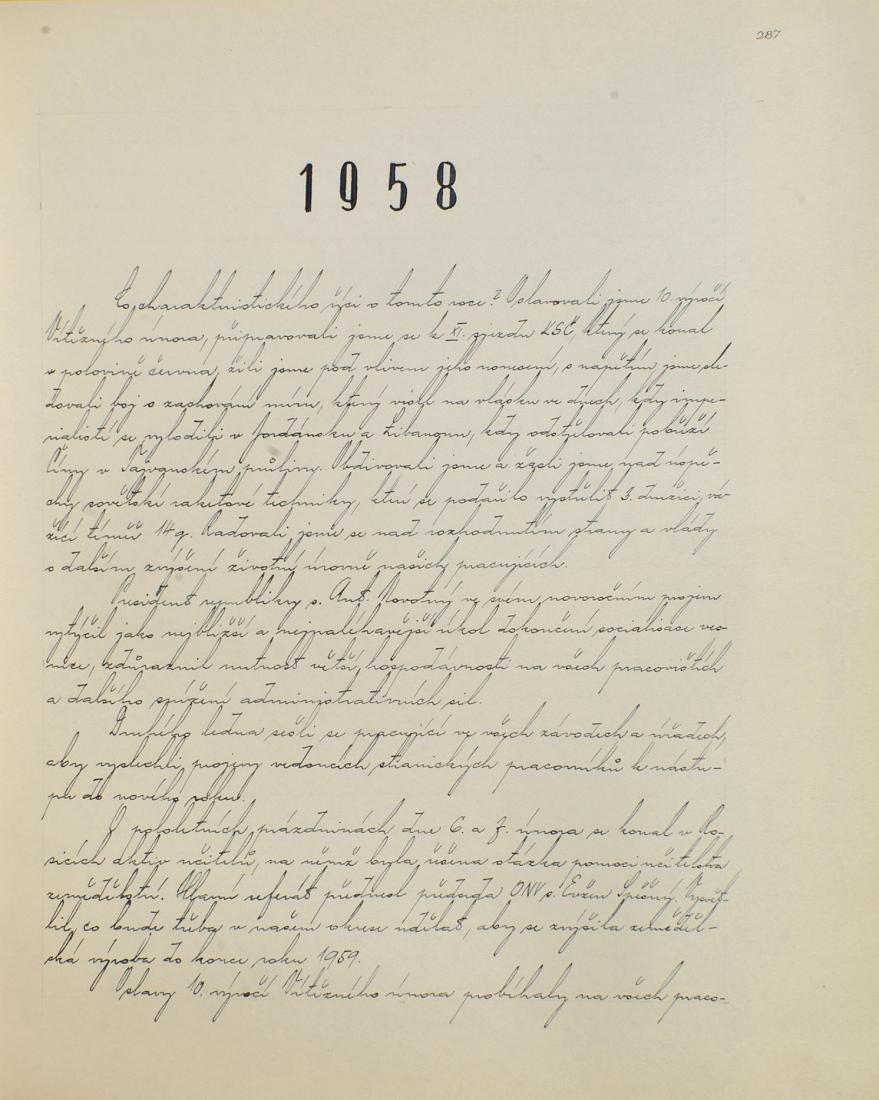 287
1958
Co charakteristického říci o tomto roce? Oslavovali jsme 10. výročí
Vítězného února, připravovali jsme se k XI. sjezdu KSČ, který se konal
v polovině června, žili jsme pod vlivem jeho usnesení, s napětím jsme sle-
dovali boj o zachování míru, který visel na vlásku ve dnech, kdy impe-
rialisté se vylodili v Jordánsku a Libanonu, kdy odstřelovali pobřeží
Číny v Tajvanském průlivu. Obdivovali jsme a žasli jsme nad úspě-
chy sovětské raketové techniky, které se podařilo vystřelit 3. družici, vá-
žící téměř 14 q. Radovali jsme se nad rozhodnutím strany a vlády
o dalším zvýšení životní úrovně našich pracujících.
President republiky s. Ant. Novotný ve svém novoročním projevu
vytýčil jako nejbližší a nejnaléhavější úkol dokončení socialisace ves-
nice, zdůraznil nutnost větší hospodárnosti na všech pracovištích
a dalšího snížení administrativních sil.
Druhého ledna sešli se pracující ve všech závodech a úřadech,
aby vyslechli projevy vedoucích stranických pracovníků k nástu-
pu do nového roku.
O pololetních prázdninách dne 6. a 7. února se konal v Ro-
sicích aktiv učitelů, na němž byla řešena otázka pomoci učitelstva
zemědělství. Hlavní referát přednesl předseda ONV s. Evžen Spěšný. Vysvět-
lil, co bude třeba v našem okrese udělat, aby se zvýšila zeměděl-
ská výroba do konce roku 1959.
Oslavy 10. výročí Vítězného února probíhaly na všech praco-